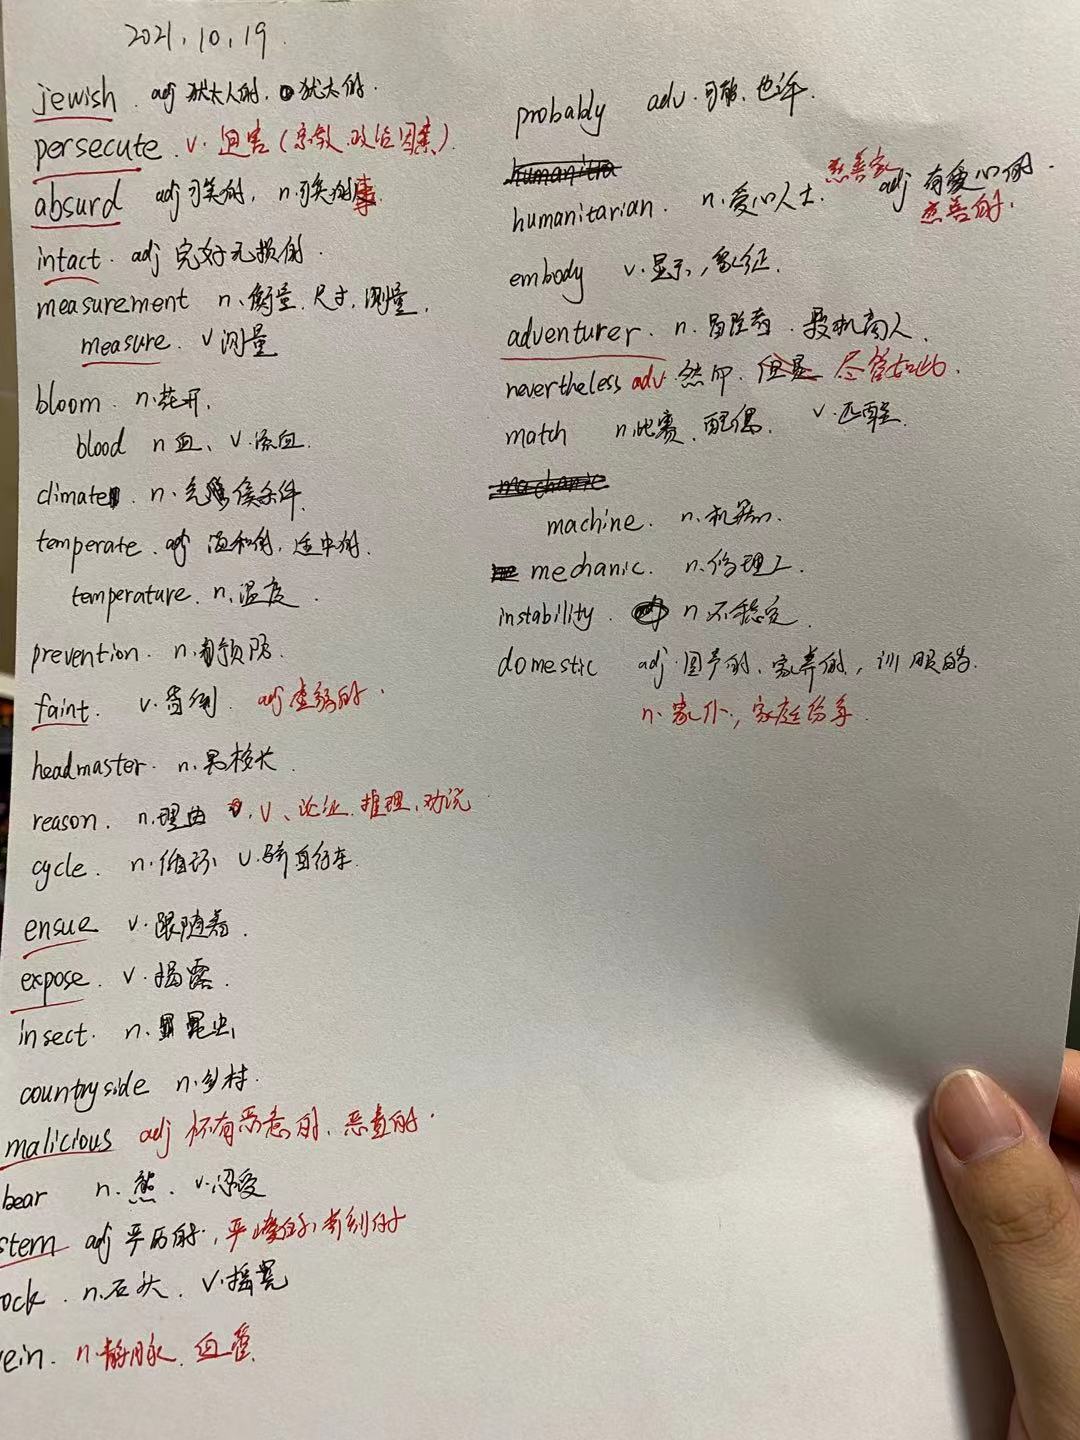 2021.10.19.
jewish. adj 犹太人的, 犹太的.
persecute. v. 迫害(宗教.政治因素)
absurd adj可笑的, n.可笑的事
intact. adj 完好无损的.
measurement n.衡量.尺寸.测量.
measure. v测量
bloom. n.花开.
blood n血、v.流血.
climate. n.气候条件.
temperate. adj 温和的, 适中的.
temperature. n.温度.
prevention. n.预防.
faint. v.昏倒. adj虚弱的.
headmaster. n.男校长.
reason. n.理由. v、论证.推理.劝说
cycle. n.循环 v.骑自行车.
ensue v.跟随着.
expose. v.揭露.
insect. n.昆虫
countryside n.乡村.
malicious adj 怀有恶意的、恶毒的.
bear n.熊. v.忍受
stern adj 严厉的, 严峻的、苛刻的
ock. n.石头. v.摇晃
ein. n.静脉.血管.
probably adv.可能.也许.
humanitra
humanitarian. n.爱心人士. 慈善家 adj 有爱心的. 慈善的.
embody v.显示, 象征.
adventurer. n.冒险者.投机商人.
nevertheless adv.然而.但是 尽管如此.
match n.比赛.配偶. v.匹配.
machanic
machine. n.机器.
mechanic. n.修理工
instability. n 不稳定.
domestic adj.国产的.家养的, 训服的.
n.家仆., 家庭纷争.